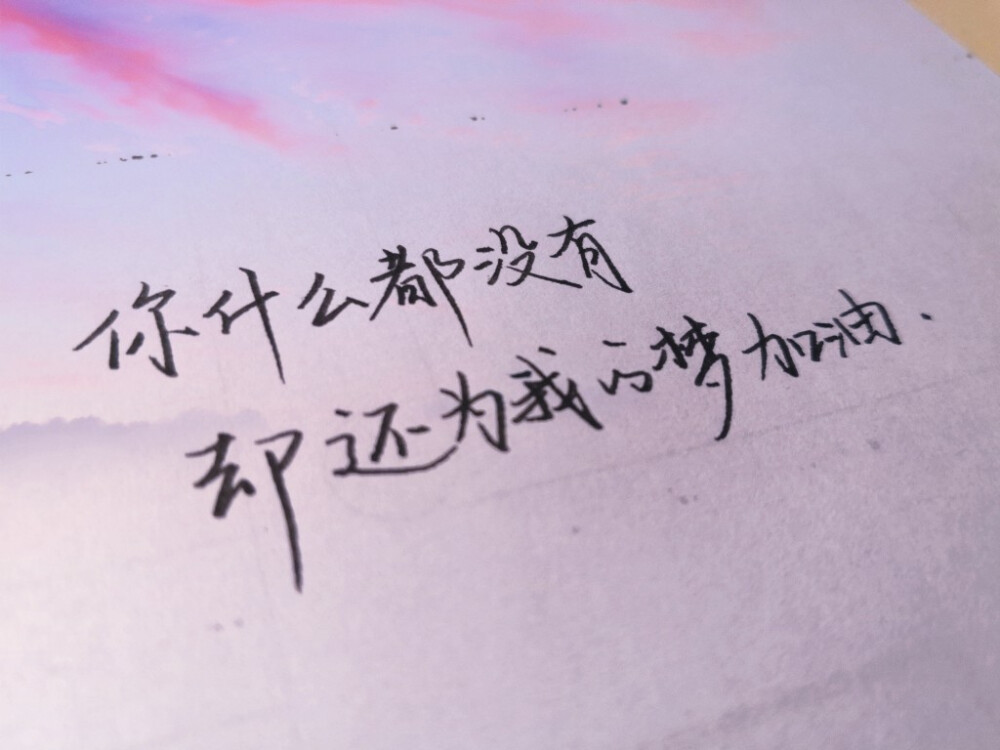 你什么都没有
却还为我的梦加油.